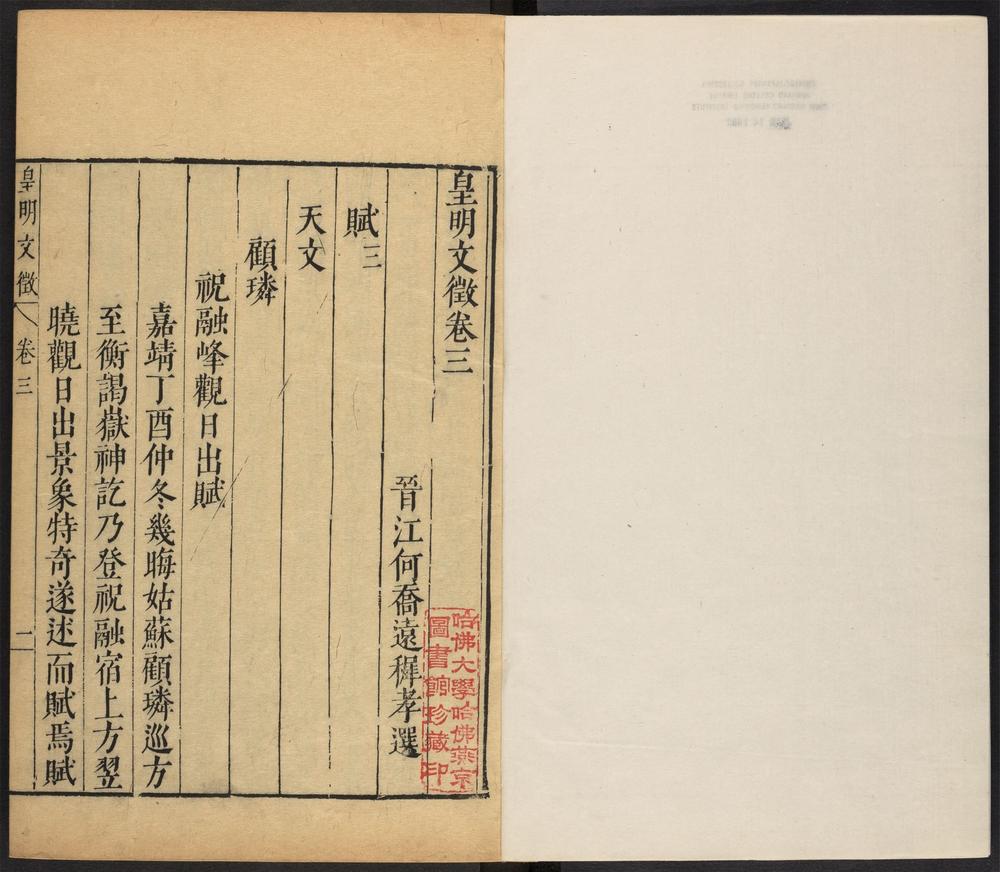 皇明文徵卷三
晉江何喬遠穉孝選
賦三
天文
顧璘
祝融峰觀日出賦
嘉靖丁酉仲冬幾晦姑蘇顧璘巡方
至衡謁嶽神訖乃登祝融宿上方翌
曉觀日出景象特奇遂述而賦焉賦
皇明文徵 卷三 二
哈佛大學哈佛燕京
圖書館珍藏印